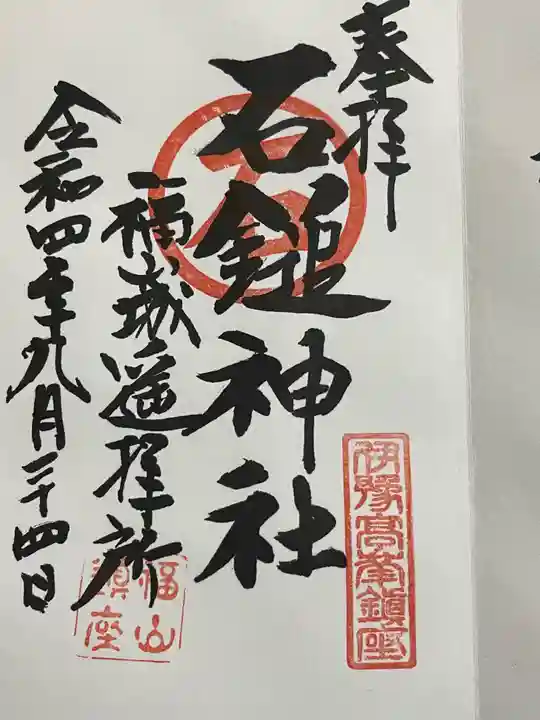 奉拝
石鎚神社
福城遥拝所
令和四年九月二十四日
伊豫高峯鎮座
福山
鎮座